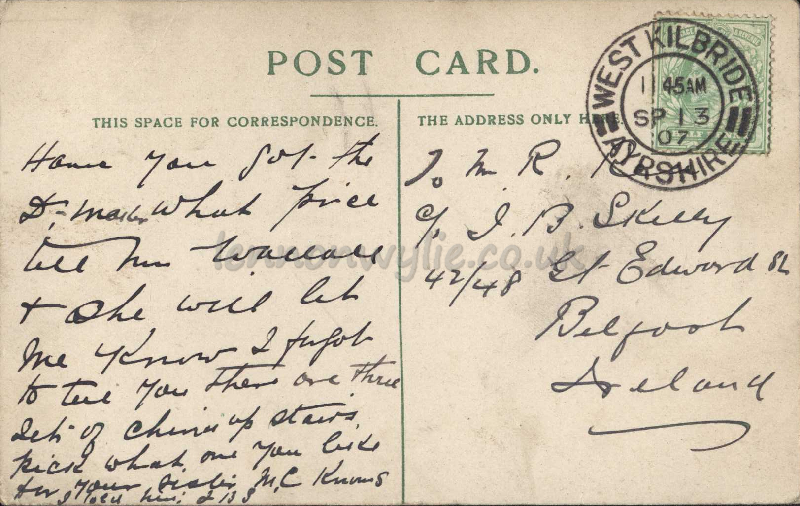 POST CARD.
THIS SPACE FOR CORRESPONDENCE.
THE ADDRESS ONLY HERE.
WEST KILBRIDE
11 45AM
SP 13
07
AYRSHIRE
Have you got the
Dr. Master what price
tell Mrs Wallace
& she will let
me know I forgot
to tell you there are three
sets of china up stairs.
pick what one you like
for your sister McC Knows
I told
To Mr R.
c/o J. B. Skelly
42/48 Gt Edward St
Belfast
Ireland
lennonwylie.co.uk